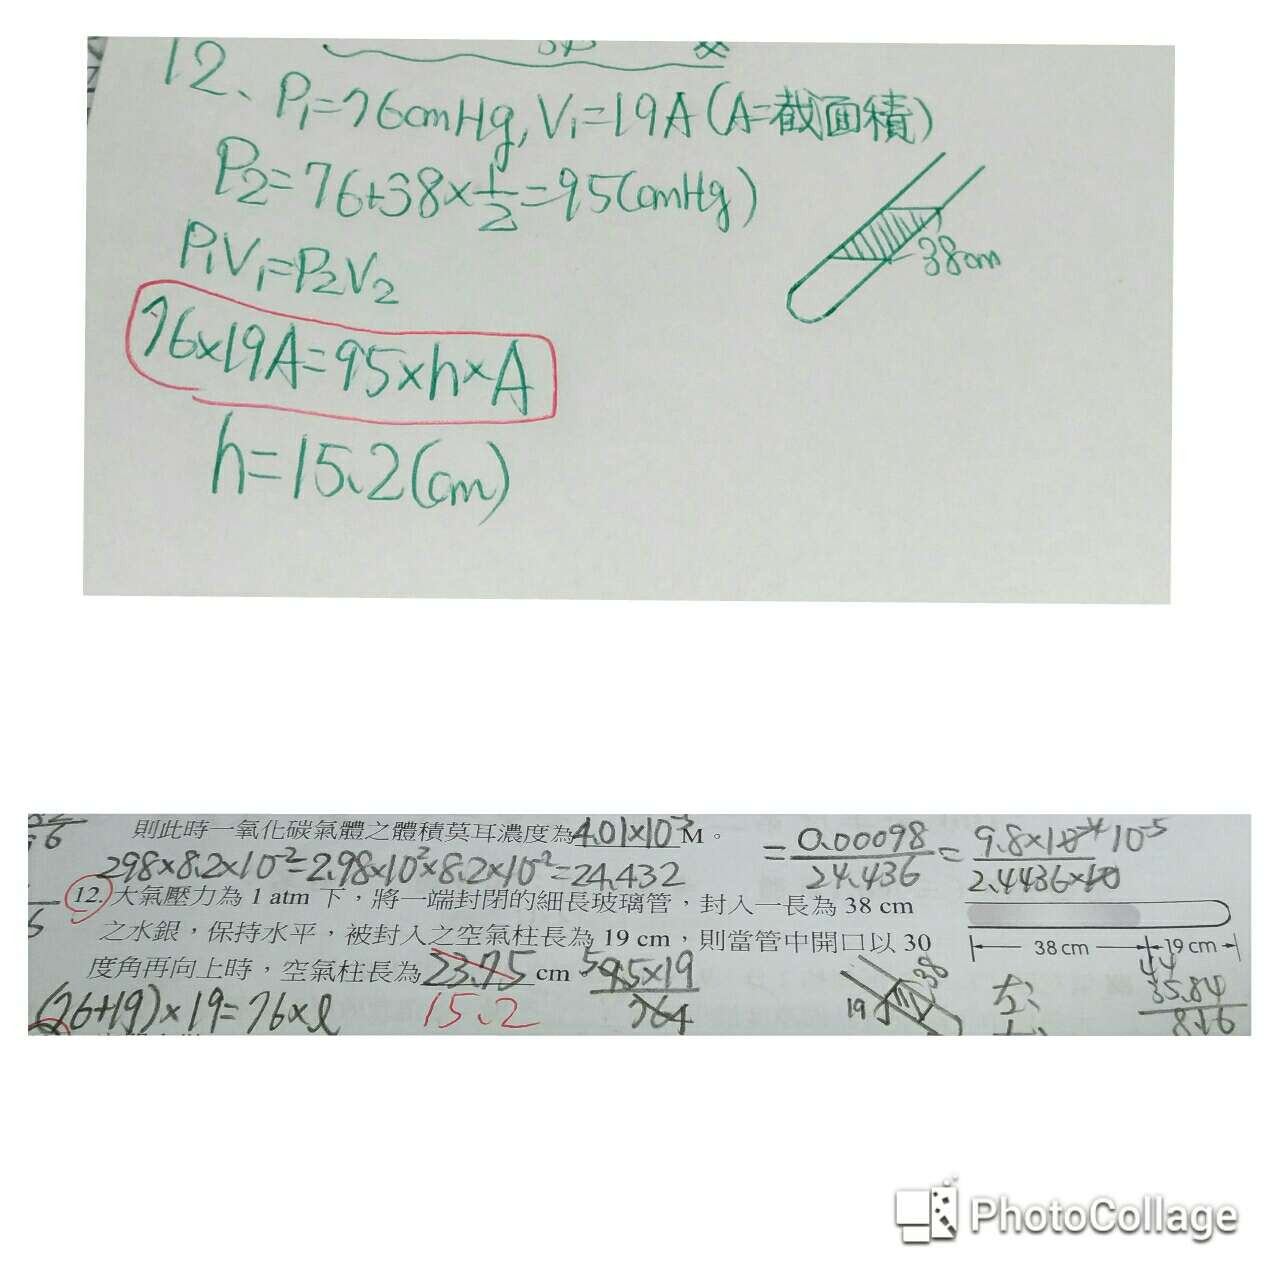 12、P₁=76cmHg, V₁=19A(A=截面積)
P₂=76+38×1/2=95(cmHg)
P₁V₁=P₂V₂
76×19A=95×h×A
h=15.2(cm)
38cm
則此時一氧化碳氣體之體積莫耳濃度為4.01×10⁻³M。
=0.00098/24.436=9.8×10⁻⁴ 10⁻⁵/2.4436×10
298×8.2×10⁻²=2.98×10²×8.2×10⁻²=24.432
12.大氣壓力為 1 atm 下，將一端封閉的細長玻璃管，封入一長為 38 cm
之水銀，保持水平，被封入之空氣柱長為 19 cm，則當管中開口以 30
度角再向上時，空氣柱長為23.75 cm
38 cm 19 cm
95×19/76
(76+19)×19=76×ℓ
15.2
19
38
35.84
PhotoCollage